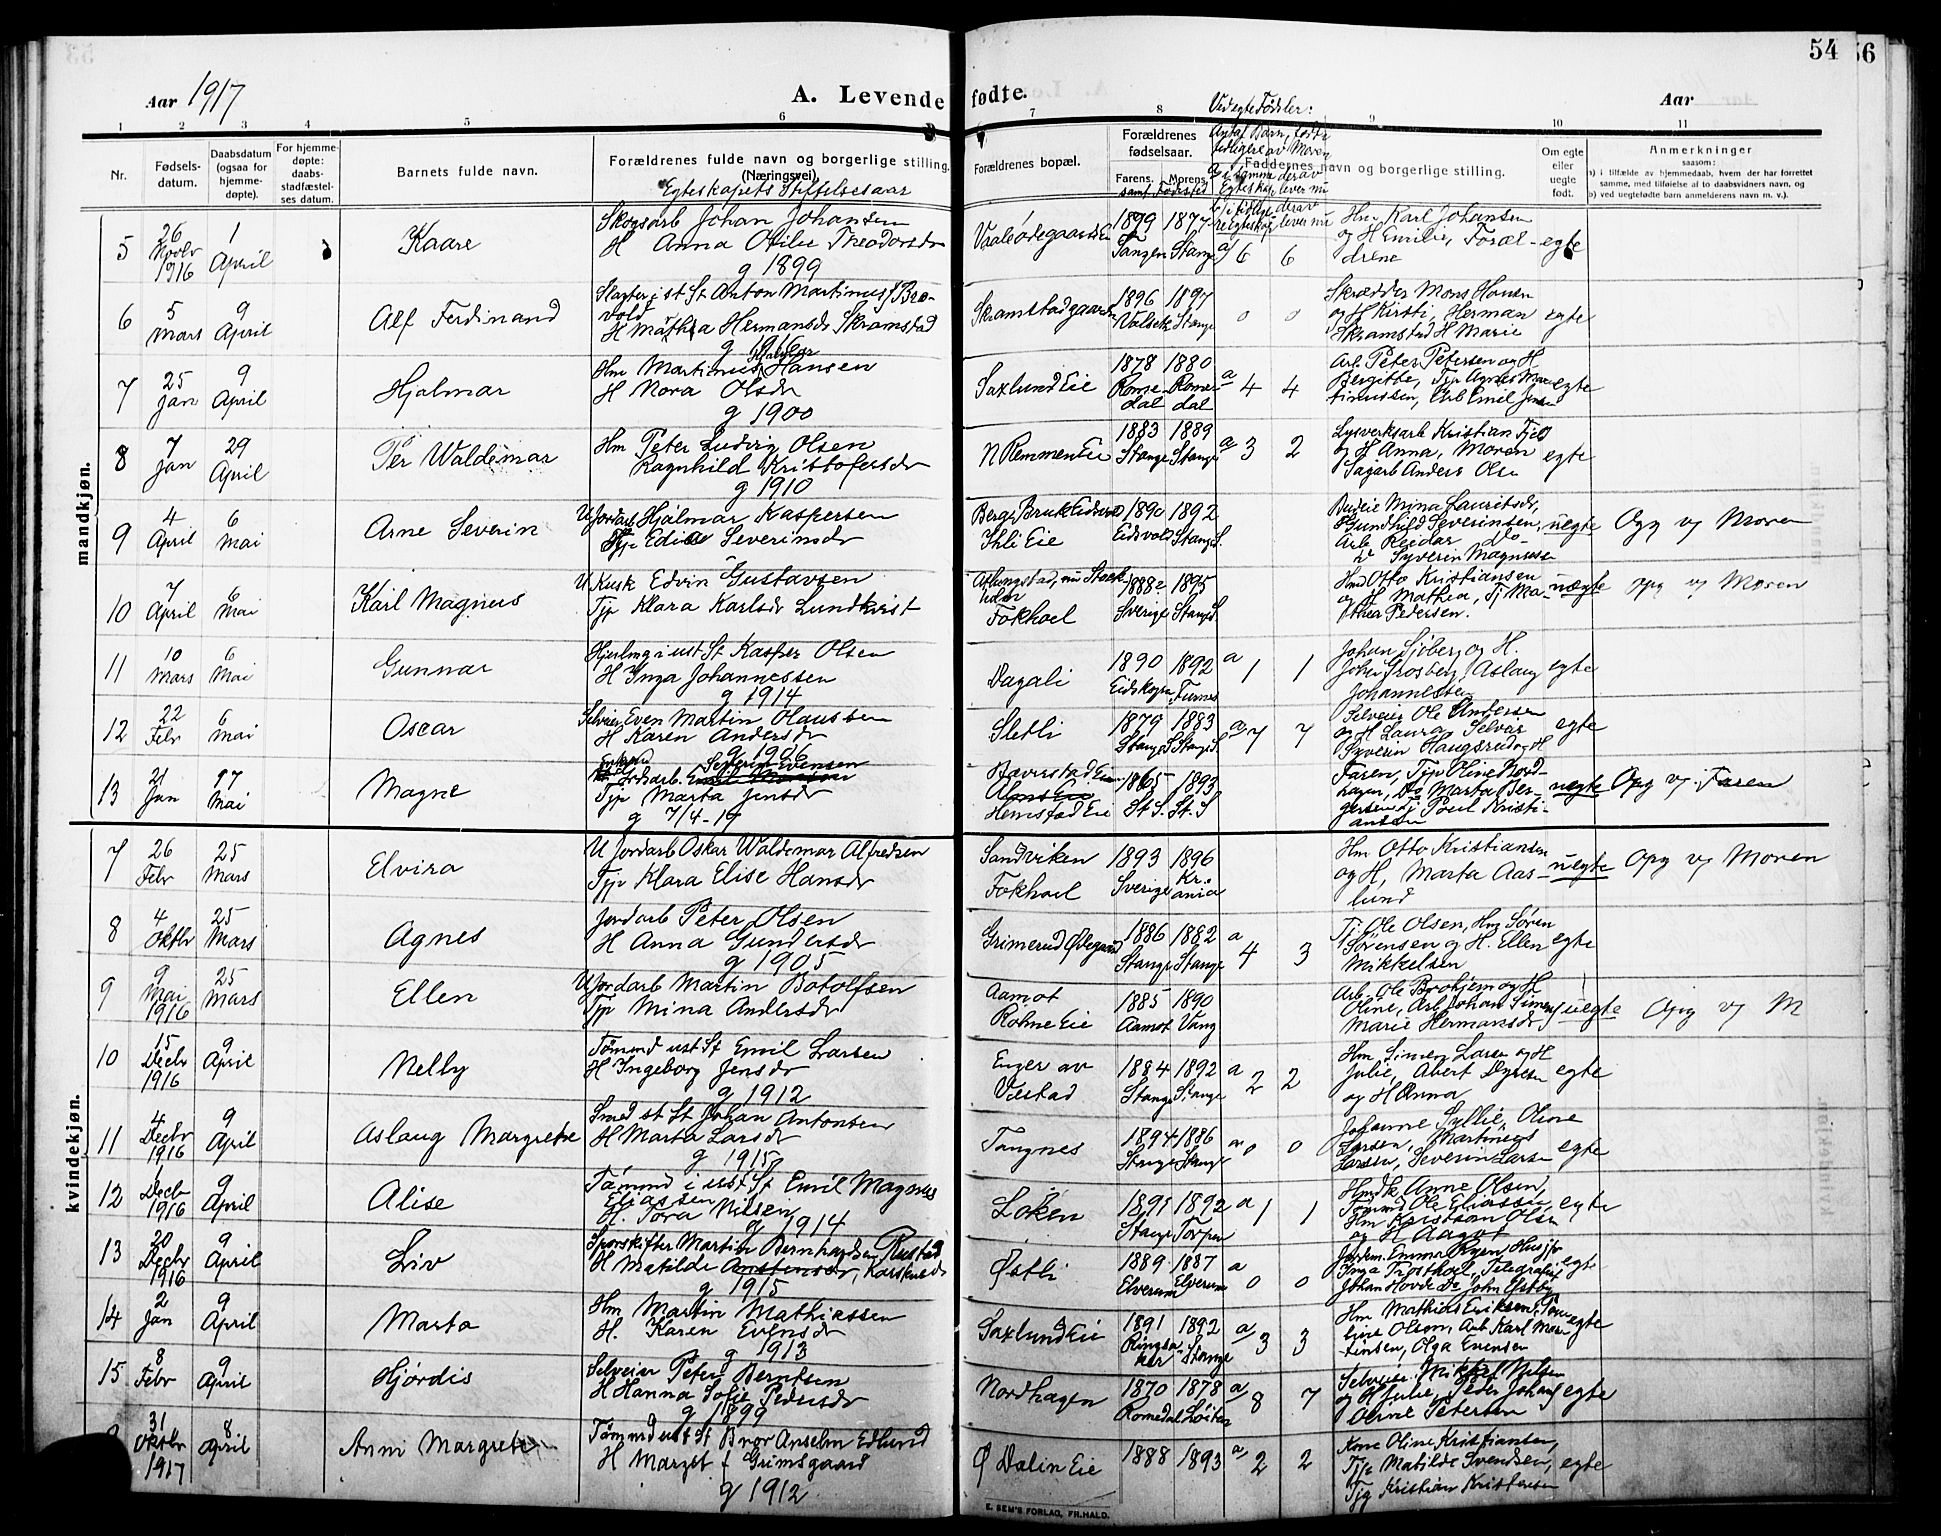 54
56
Aar 1917
A. Levende fødte.
Aar
Ved egte Fødsler:
1 2 3 4 5 6 7 8 9 10 11
Nr.
Fødsels-
datum.
Daabsdatum
(ogsaa for
hjemme-
døpte).
For hjemme-
døpte:
daabs-
stadfæstel-
ses datum.
Barnets fulde navn.
Forældrenes fulde navn og borgerlige stilling.
(Næringsvei).
Egteskapets Stiftelsesaar
Forældrenes bopæl.
Forældrenes
fødselsaar.
Farens. Morens.
samt Fødested
Antal Børn, fødte
tidligere av Moren
Faddernes navn og borgerlige stilling.
Om egte
eller
uegte
født.
Anmerkninger
saasom:
a) i tilfælde av hjemmedaab, hvem der har forrettet
samme, med tilføielse af to daabsvidners navn, og
b) ved uegtefødte barn anmelderens navn m. v.)
mandkjøn.
5 26 Novbr 1916 1 April Kaare
Skogsarb Johan Johansen
H Anna Otilie Theodorsdr
g 1899
1899 1877 Tangen Stange a 6 6
Hm Karl Johansen
og H Emilie, Foræl-
drene
egte
6 5 Mars 9 April Alf Ferdinand
Slagter i st St Anton Martinus Bre-
vold
H Mathea Hermansdr Skramstad
g 1916
Skramstadgaarden 1896 1897 Stange 0 0
Skrædder Mons Hansen
og H Kirsti, Herman
Skramstad H Marie
egte
7 25 Jan 9 April Hjalmar
Hm Martinus Hjalmar Hansen
H Nora Olsdr
g 1900
Saxlund Eie 1878 1880 Romedal Romedal a 4 4
Arb Peter Petersen og H
Bergitte, Tjp Agnes Mar-
tinussen, Arb Emil Jensen
egte
8 7 Jan 29 April Per Waldemar
Hm Peter Ludvig Olsen
Ragnhild Kristofersdr
g 1910
N Remmen Eie 1883 1889 Stange Stange a 3 2
Lysverksarb Kristian Fjeld
og H Anna, Moren
Sagarb Anders Olsen
egte
9 4 April 6 Mai Arne Severin
U Jordarb Hjalmar Kaspersen
Tjp Edile Severinsdr
Berger Bruk Eidsvold
Ihli Eie 1890 1892 Eidsvold Stange S.
Budeie Mina Lauritsdr,
Gundhild Severinsen,
Arb Reidar do
do Syverin Magnussen
uegte Opg v Moren
10 7 April 6 Mai Karl Magnus
U Kusk Edvin Gustavsen
Tjp Klara Karlsdr Lundkvist
Atlungstad, nu Stock-
holm
Fokhoel 1888 1895 Sverige Stange S.
Hm Otto Kristiansen
og H Mathea, Tj Ma-
thea Pedersen.
uegte Opg v Moren
11 10 Mars 6 Mai Gunnar
Hjulmg i ust St Kasper Olsen
H Inga Johannessen
g 1914
Dagali 1890 1892 Eidskogen Furnes a 1 1
Johan Sjøberg og H.
Johan Grosberg, Aslaug
Johannessen
egte
12 22 Febr 6 Mai Oscar
Selveier Even Martin Olaussen
H Karen Andersdr
g 1906
Sletli 1879 1883 Stange S Stange S a 7 7
Selveier Ole Andersen
og H Laura, Selveier
Syverin Haugsrud og H
egte
13 21 Jan 17 Mai Magne
Jordarb. Severin Evensen
Tjp Marta Jensdr
g 7/4-17
Hemstad Eie 1865 1893 St. S. St. S
Faren, Tjp Oline Nord-
hagen, Do Marta Ber-
gersen Tj Paul Kristi-
ansen
uegte Opg v. Faren
kvindekjøn.
7 26 Febr 25 Mars Elvira
U Jordarb Oskar Waldemar Alfredsen
Tjp Klara Elise Hansdr
Sandviken
Fokhoel 1893 1896 Sverige Kr.ania
Hm Otto Kristiansen
og H, Marta Aas-
lund
uegte Opg v Moren
8 4 Oktbr 25 Mars Agnes
Jordarb Peter Olsen
H Anna Gundersdr
g 1905
Grimerud Ødegaard 1886 1882 Stange Stange a 4 3
Tj Ole Olsen, Hm Søren
Sørensen og H. Ellen
Mikkelsen
egte
9 9 Mai 1916 25 Mars Ellen
U Jordarb Martin Botolfsen
Tjp Mina Andersdr
Aamot
Rohne Eie 1885 1890 Aamot Vang
Arb Ole Brohjem og H
Oline, Arb Johan Simensen
Marie Hermansdr
uegte Opg v M
10 15 Decbr 1916 9 April Nelly
Tømmd ust St Emil Larsen
H Ingeborg Jensdr
g 1912
Enger av
Vestad 1884 1892 Stange Stange a 2 2
Hm Simen Larsen og H
Julie, Albert Dyresen
og H Anna
egte
11 4 Decbr 1916 9 April Aslaug Margrete
Smed st St Johan Antonsen
H Marta Larsdr
g 1915
Tangnes 1894 1886 Stange Stange a 0 0
Johanne Syllie, Oline
Larsen, Martinius
Larsen, Severin Larsen
egte
12 1 Decbr 1916 9 April Alise
Tømmd i ust St Emil Magnus
Eliassen
H. Tora Nilsen
g 1914
Løken 1891 1892 Stange Torpen a 1 1
Anne Olsen,
Tømmd Ole Eliassen,
Hm Kristian Olsen
og H Aagot
egte
13 20 Decbr 1916 9 April Liv
Sporskifter Martin Bernhardsen Rustad
H Matilde
g 1915
Østli 1889 1887 Elverum Elverum a 0 0
Jordm. Emma Ryen, Husjfr
Inga Frosthoel, Telegrafist
Johan Hovde Do John Østby
egte
14 2 Jan 9 April Marta
Hm Martin Mathiassen
H. Karen Evensdr
g 1913
Saxlund Eie 1891 1892 Ringsaker Stange a 3 3
Hm Mathias Eriksen, Pau-
line Olsen, Arb Karl Mar-
tinsen, Olga Evensen
egte
15 8 Febr 9 April Hjørdis
Selveier Peter Berntsen
H Hanna Sofie Pedersdr
g 1899
Nordhagen 1870 1878 Romedal Løiten a 8 7
Selveier Mikkel Nilsen
og H Julie, Peder Johansen
Oline Petersen
egte
31 Oktbr 1917 8 April Anni Margrete
Tømmd ust St Bror Anselm Edlund
H Marget f Grimsgaard
g 1912
Ø Dalin Eie 1888 1893 a 2 2
Kone Oline Kristiansen,
Tjp Matilde Svendsen,
Tjg Kristian Kristensen
egte
E. SEM'S FORLAG, FR.HALD.